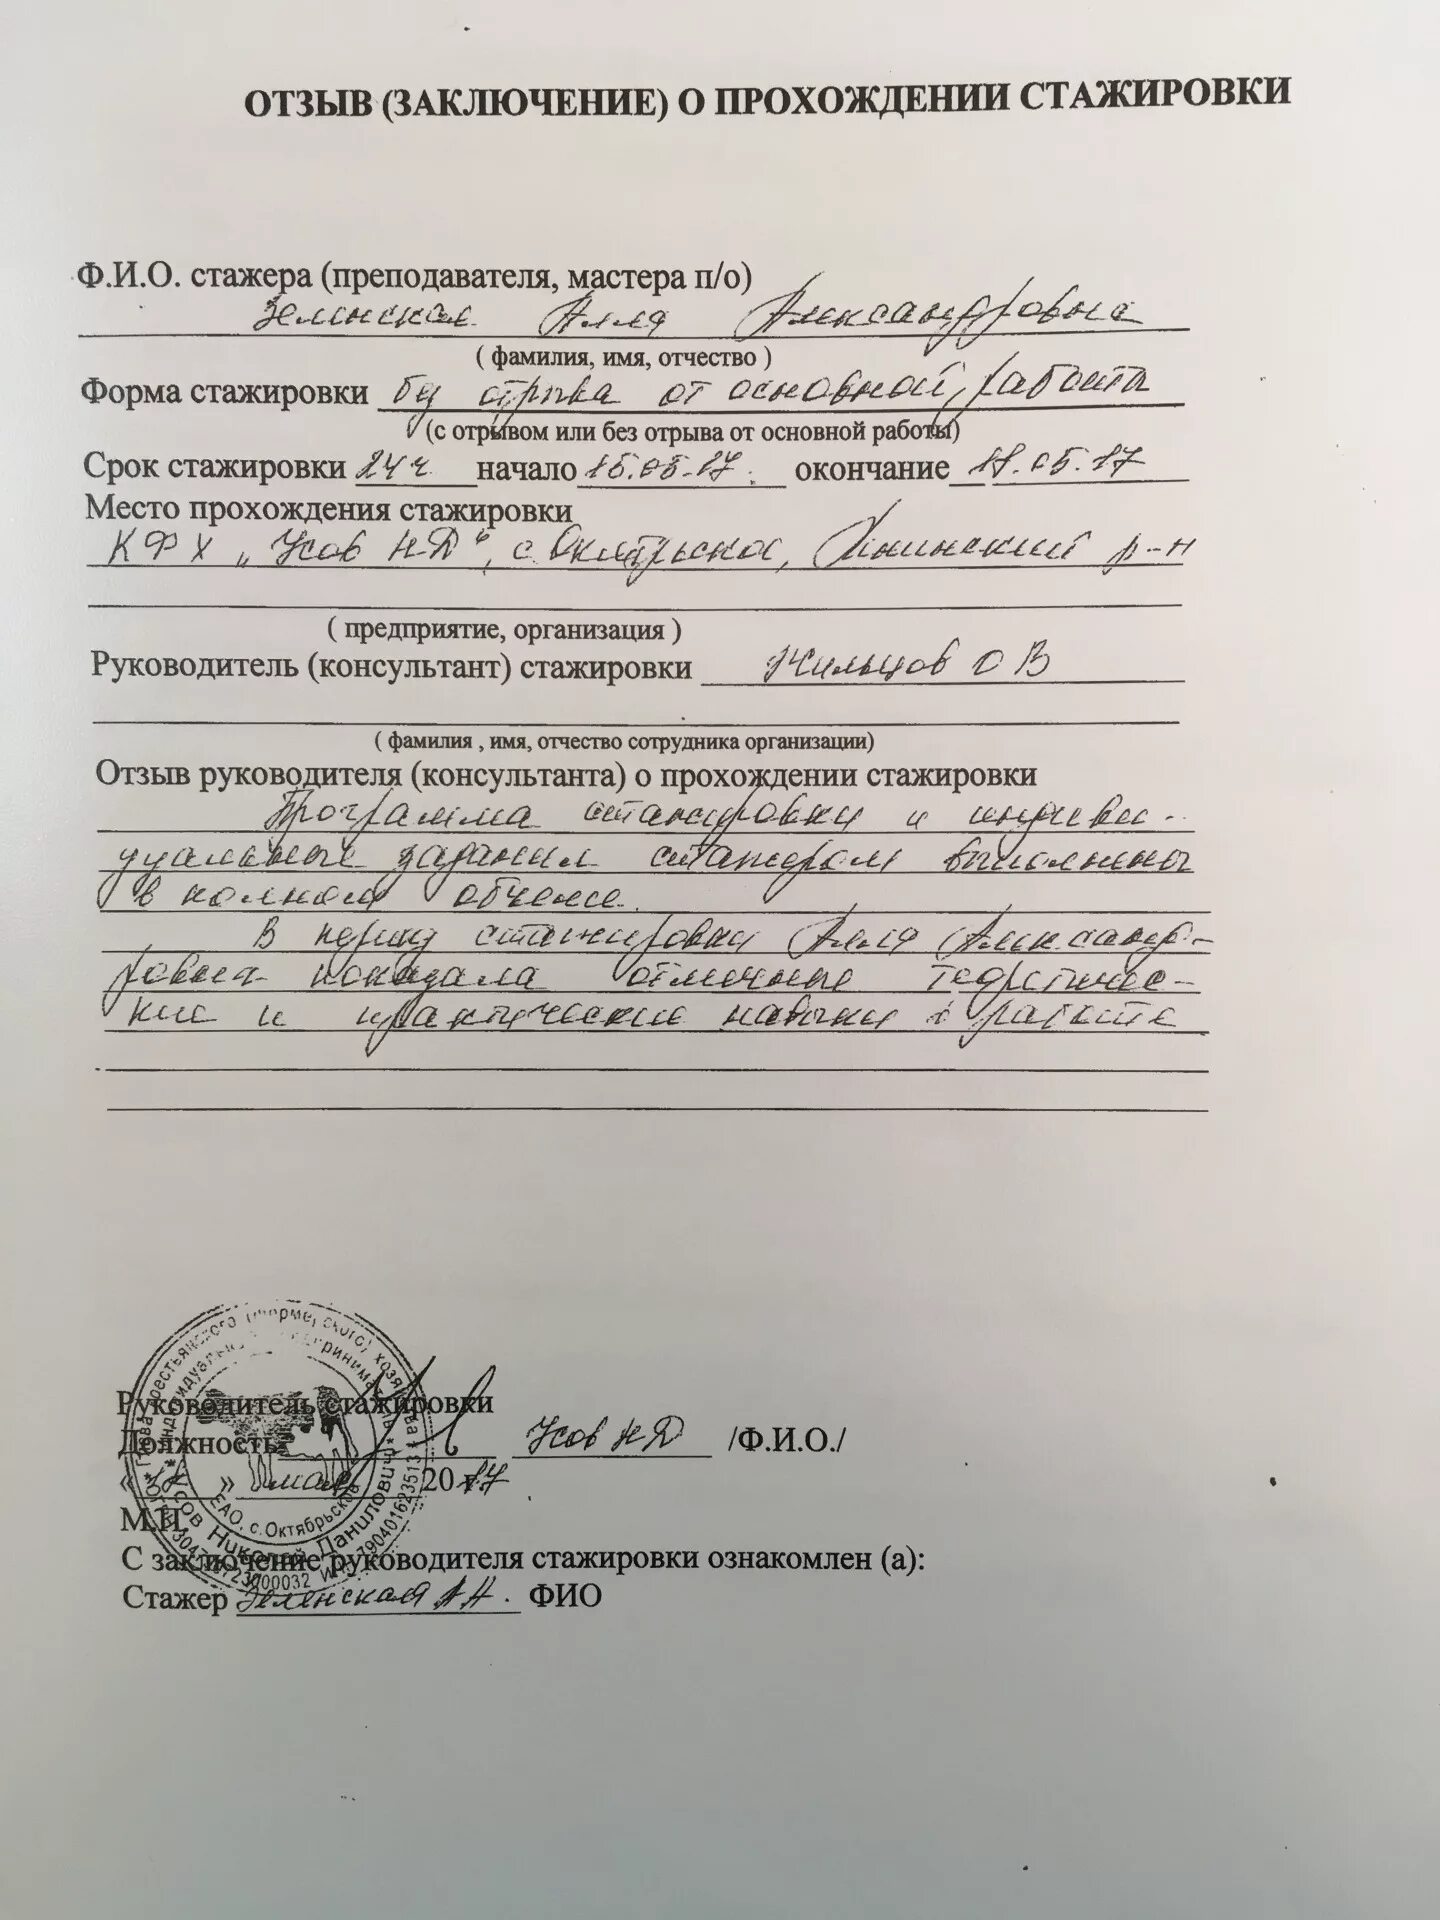 ОТЗЫВ (ЗАКЛЮЧЕНИЕ) О ПРОХОЖДЕНИИ СТАЖИРОВКИ
Ф.И.О. стажера (преподавателя, мастера п/о)
Зелинская Алла Александровна
( фамилия, имя, отчество )
Форма стажировки без отрыва от основной работы
(с отрывом или без отрыва от основной работы)
Срок стажировки 24 ч начало 15.05.17. окончание 18.05.17
Место прохождения стажировки
КФХ "Усов Н Д", с. Октябрьское, р-н
( предприятие, организация )
Руководитель (консультант) стажировки Жильцов О В
( фамилия , имя, отчество сотрудника организации)
Отзыв руководителя (консультанта) о прохождении стажировки
Программа стажировки и индиви-
дуальные задания стажером выполнены
в полном объеме.
В период стажировки Алла Александ-
ровна показала отличные теоретичес-
кие и практические навыки в работе
Руководитель стажировки
Должность Усов Н Д /Ф.И.О./
« » мая 2017
М.П.
С заключение руководителя стажировки ознакомлен (а):
Стажер Зелинская А.А. ФИО
Глава крестьянского (фермерского) хозяйства
Индивидуальный предприниматель
Усов Николай Данилович
ЕАО, с.Октябрьское